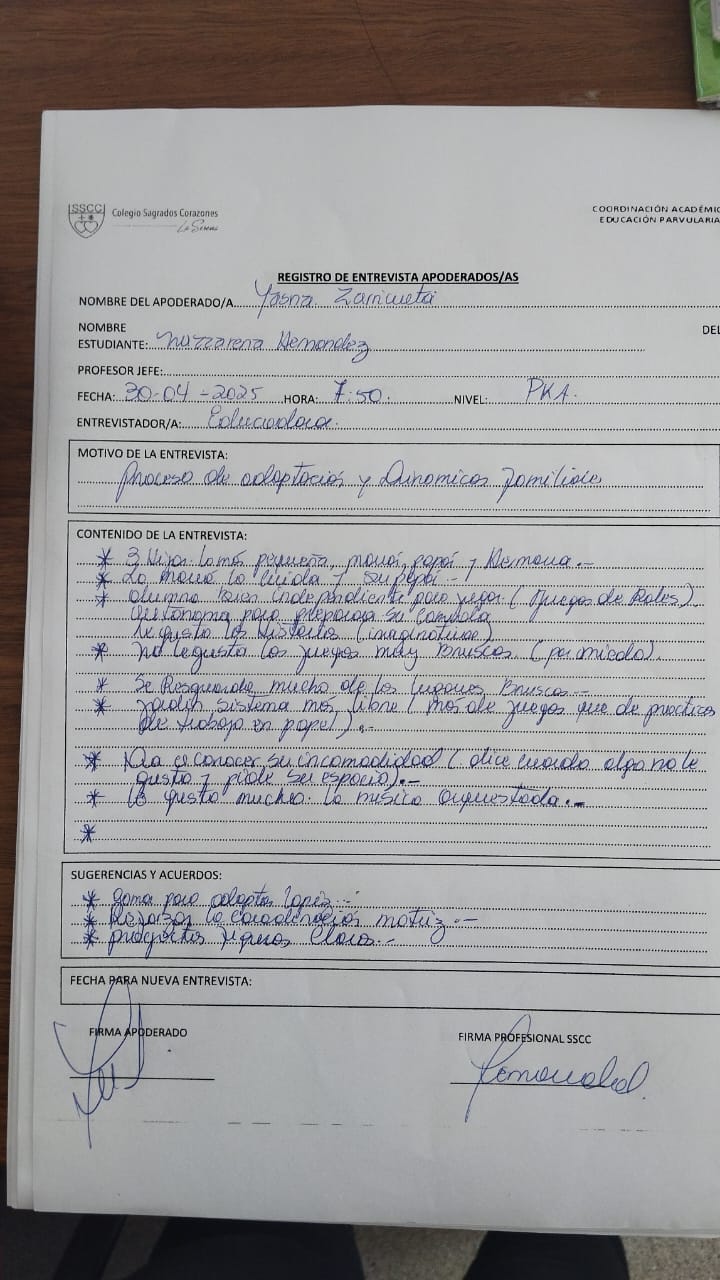 SSCC
Colegio Sagrados Corazones
La Serena
COORDINACIÓN ACADÉMIC
EDUCACIÓN PARVULARIA
REGISTRO DE ENTREVISTA APODERADOS/AS
NOMBRE DEL APODERADO/A Yasna Zarricueta
NOMBRE DEL
ESTUDIANTE: Nazzarena Hernandez
PROFESOR JEFE:
FECHA: 30-04-2025 HORA: 7:50. NIVEL: PKA.
ENTREVISTADOR/A: Educadora.
MOTIVO DE LA ENTREVISTA:
Proceso de adaptación y Dinamicas familiares
CONTENIDO DE LA ENTREVISTA:
* 3 Hijas. la más pequeña, mamá, papá y Hermana.-
* La mamá la cuida y su papá.-
* alumna bien independiente para jugar (Juegos de Roles).
autonoma para preparar su comida
le gusta las Historias (imaginativas)
* no le gusta los juegos muy Bruscos. (por miedo).
* Se Resguarda mucho de los lugares Bruscos.-
* jardín sistema más libre (más de juegos que de practicas
de trabajo en papel).-
* Da a conocer su incomodidad (dice cuando algo no le
gusta y pide su espacio).-
* le gusta mucho la música orquestada.-
*
SUGERENCIAS Y ACUERDOS:
* goma para adaptar lapiz.-
* Reforzar la coordinación motriz.-
* preguntas seguras claras.-
FECHA PARA NUEVA ENTREVISTA:
FIRMA APODERADO
FIRMA PROFESIONAL SSCC